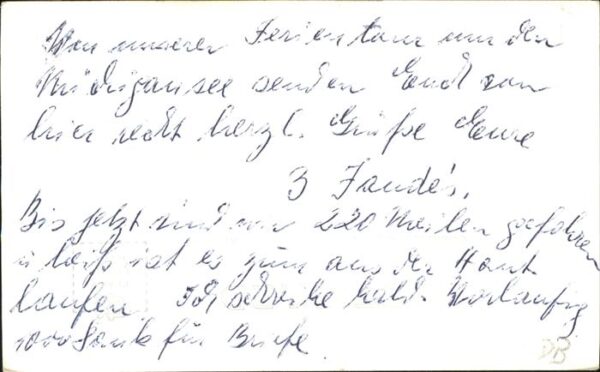 Von unserer Ferientour um den
Michigansee senden Euch von
hier recht herzl. Grüße Eure
3 Jaude's.
Bis jetzt sind wir 220 Meilen gefahren
u heiß ist es zum aus der Haut
laufen. Ich schreibe bald. Vorläufig
1000 Dank für Briefe.
DB